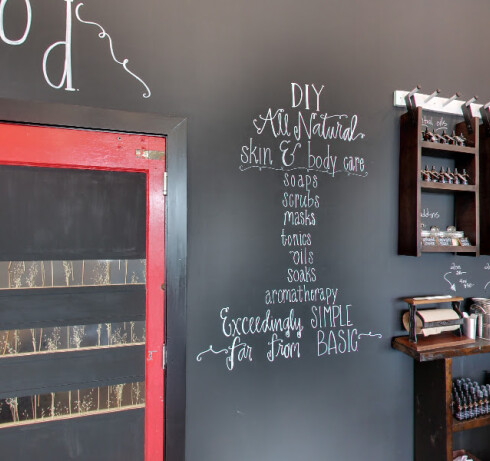 od.
DIY
All Natural
skin & body care
soaps
scrubs
masks
tonics
oils
soaks
aromatherapy
Exceedingly SIMPLE
far from BASIC
add-ons